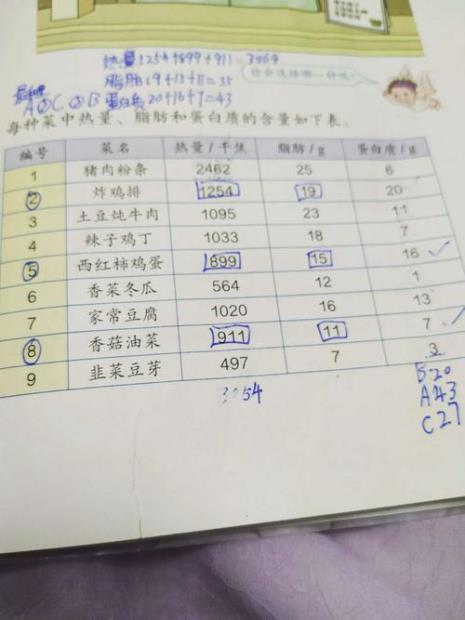 热量1254+899+911=3064
脂肪19+15+11=35
A②C②B 蛋白质20+16+7=43
每种菜中热量、脂肪和蛋白质的含量如下表。
编号 菜名 热量/千焦 脂肪/g 蛋白质/g
1 猪肉粉条 2462 25 6
2 炸鸡排 1254 19 20
3 土豆炖牛肉 1095 23 11
4 辣子鸡丁 1033 18 7
5 西红柿鸡蛋 899 15 16
6 香菜冬瓜 564 12 1
7 家常豆腐 1020 16 13
8 香菇油菜 911 11 7
9 韭菜豆芽 497 7 3
3054
B20
A43
C27